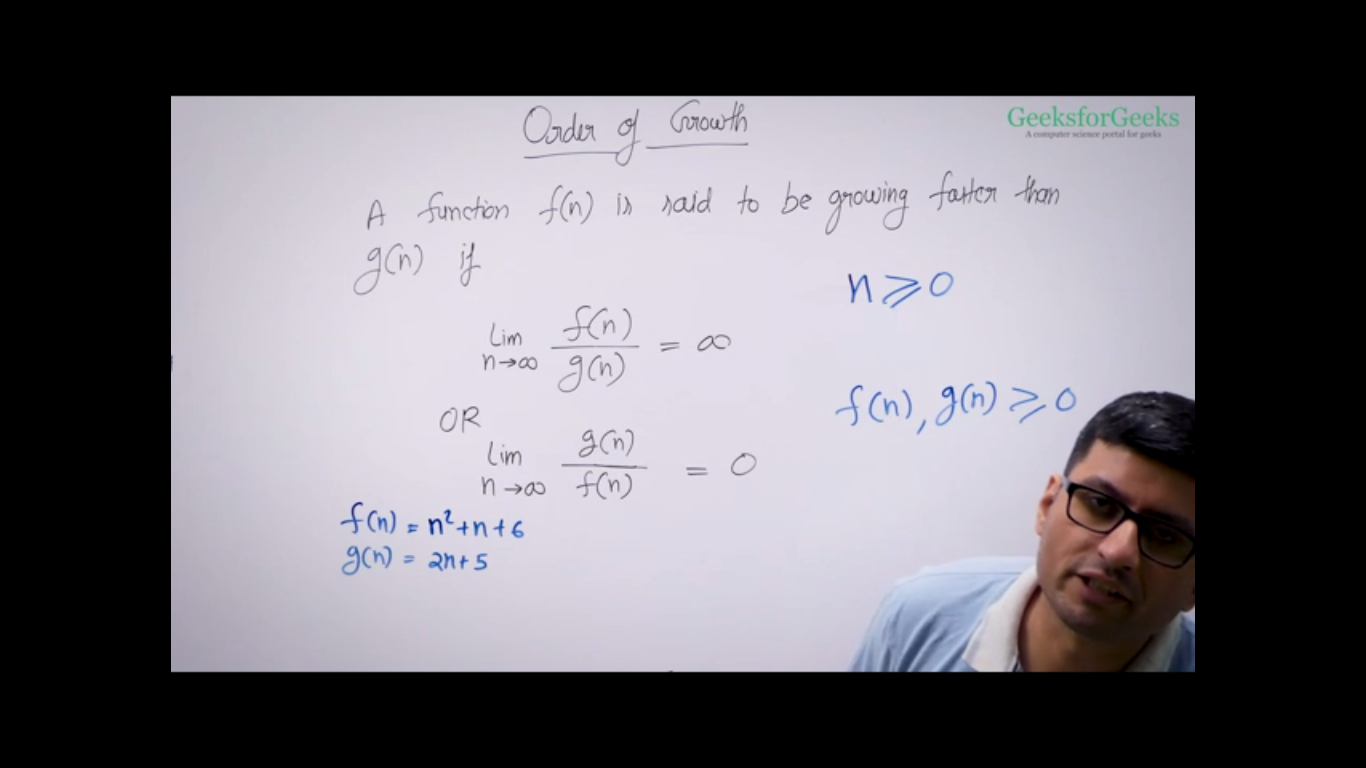 Order of Growth
GeeksforGeeks
A computer science portal for geeks
A function f(n) is said to be growing faster than
g(n) if
n ⩾ 0
Lim n→∞ f(n)/g(n) = ∞
f(n), g(n) ⩾ 0
OR
Lim n→∞ g(n)/f(n) = 0
f(n) = n²+n+6
g(n) = 2n+5